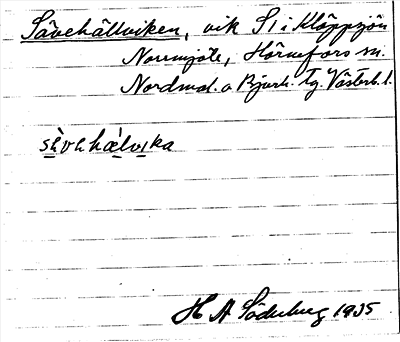 Sävehällviken, vik S i Klöppsjön
Norrmjöle, Hörnefors sn.
Nordmal. o Bjurh. tg. Västerb. l.
sèvehälvika
H A Söderberg 1935